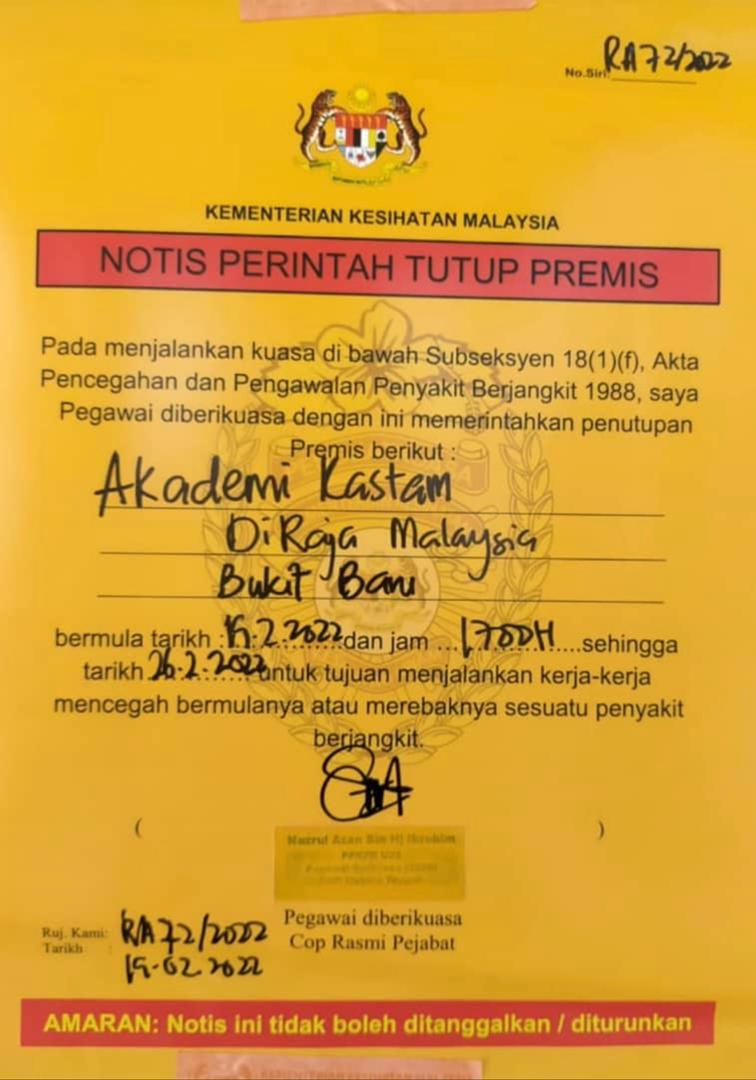 No.Siri: RA72/2022
KEMENTERIAN KESIHATAN MALAYSIA
NOTIS PERINTAH TUTUP PREMIS
Pada menjalankan kuasa di bawah Subseksyen 18(1)(f), Akta
Pencegahan dan Pengawalan Penyakit Berjangkit 1988, saya
Pegawai diberikuasa dengan ini memerintahkan penutupan
Premis berikut :
Akademi Kastam
DiRaja Malaysia
Bukit Baru
bermula tarikh : 15.2.2022 dan jam ...1700H....sehingga
tarikh 26.2.2022 untuk tujuan menjalankan kerja-kerja
mencegah bermulanya atau merebaknya sesuatu penyakit
berjangkit.
( )
Nazrul Azan Bin Hj Ibrahim
Pegawai diberikuasa
Cop Rasmi Pejabat
Ruj. Kami: RA72/2022
Tarikh : 15.02.2022
AMARAN: Notis ini tidak boleh ditanggalkan / diturunkan